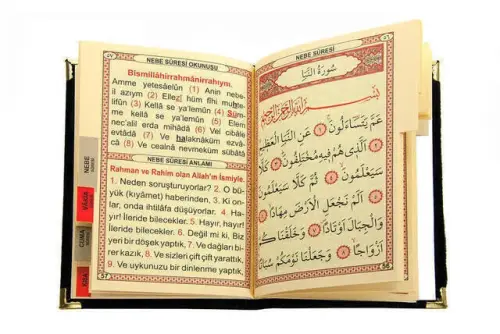 NEBE SÛRESİ OKUNUŞU
Bismillâhirrahmânirrahıym.
Amme yetesâelûn (1) Anin nebe-
il azıym (2) Ellezî hüm fîhi muhte-
lifûn (3) Kellâ se ya'lemûn (4) Süm-
me kellâ se ya'lemûn (5) Elem
nec'alil erda mihâdâ (6) Vel cibâle
evtâdâ (7) Ve halaknâküm ezvâ-
câ (8) Ve cealnâ nevmeküm sübâtâ
NEBE SÛRESİ ANLAMI
Rahman ve Rahim olan Allah'ın İsmiyle.
1. Neden soruşturuyorlar? 2. O bü-
yük (kıyâmet) haberinden. 3. Ki on-
lar, onda ihtilâfa düşüyorlar. 4. Ha-
yır! İleride bilecekler. 5. Hayır, hayır!
İleride bilecekler. 6. Değil mi ki, Biz
yeri bir döşek yaptık. 7. Ve dağları bi-
rer kazık, 8. Ve sizleri çift çift yarattık.
9. Ve uykunuzu bir dinlenme yaptık,
NEBE
CUMA
NEBE SÛRESİ
سُورَةُ النَّبَإِ
بِسْمِ اللّٰهِ الرَّحْمٰنِ الرَّحِيمِ
عَمَّ يَتَسَاءَلُونَ ۝١ عَنِ النَّبَإِ الْعَظِيمِ
۝٢ الَّذِي هُمْ فِيهِ مُخْتَلِفُونَ ۝٣ كَلَّا
سَيَعْلَمُونَ ۝٤ ثُمَّ كَلَّا سَيَعْلَمُونَ
۝٥ اَلَمْ نَجْعَلِ الْاَرْضَ مِهَادًا ۝٦
وَالْجِبَالَ اَوْتَادًا ۝٧ وَخَلَقْنَاكُمْ
اَزْوَاجًا ۝٨ وَجَعَلْنَا نَوْمَكُمْ سُبَاتًا